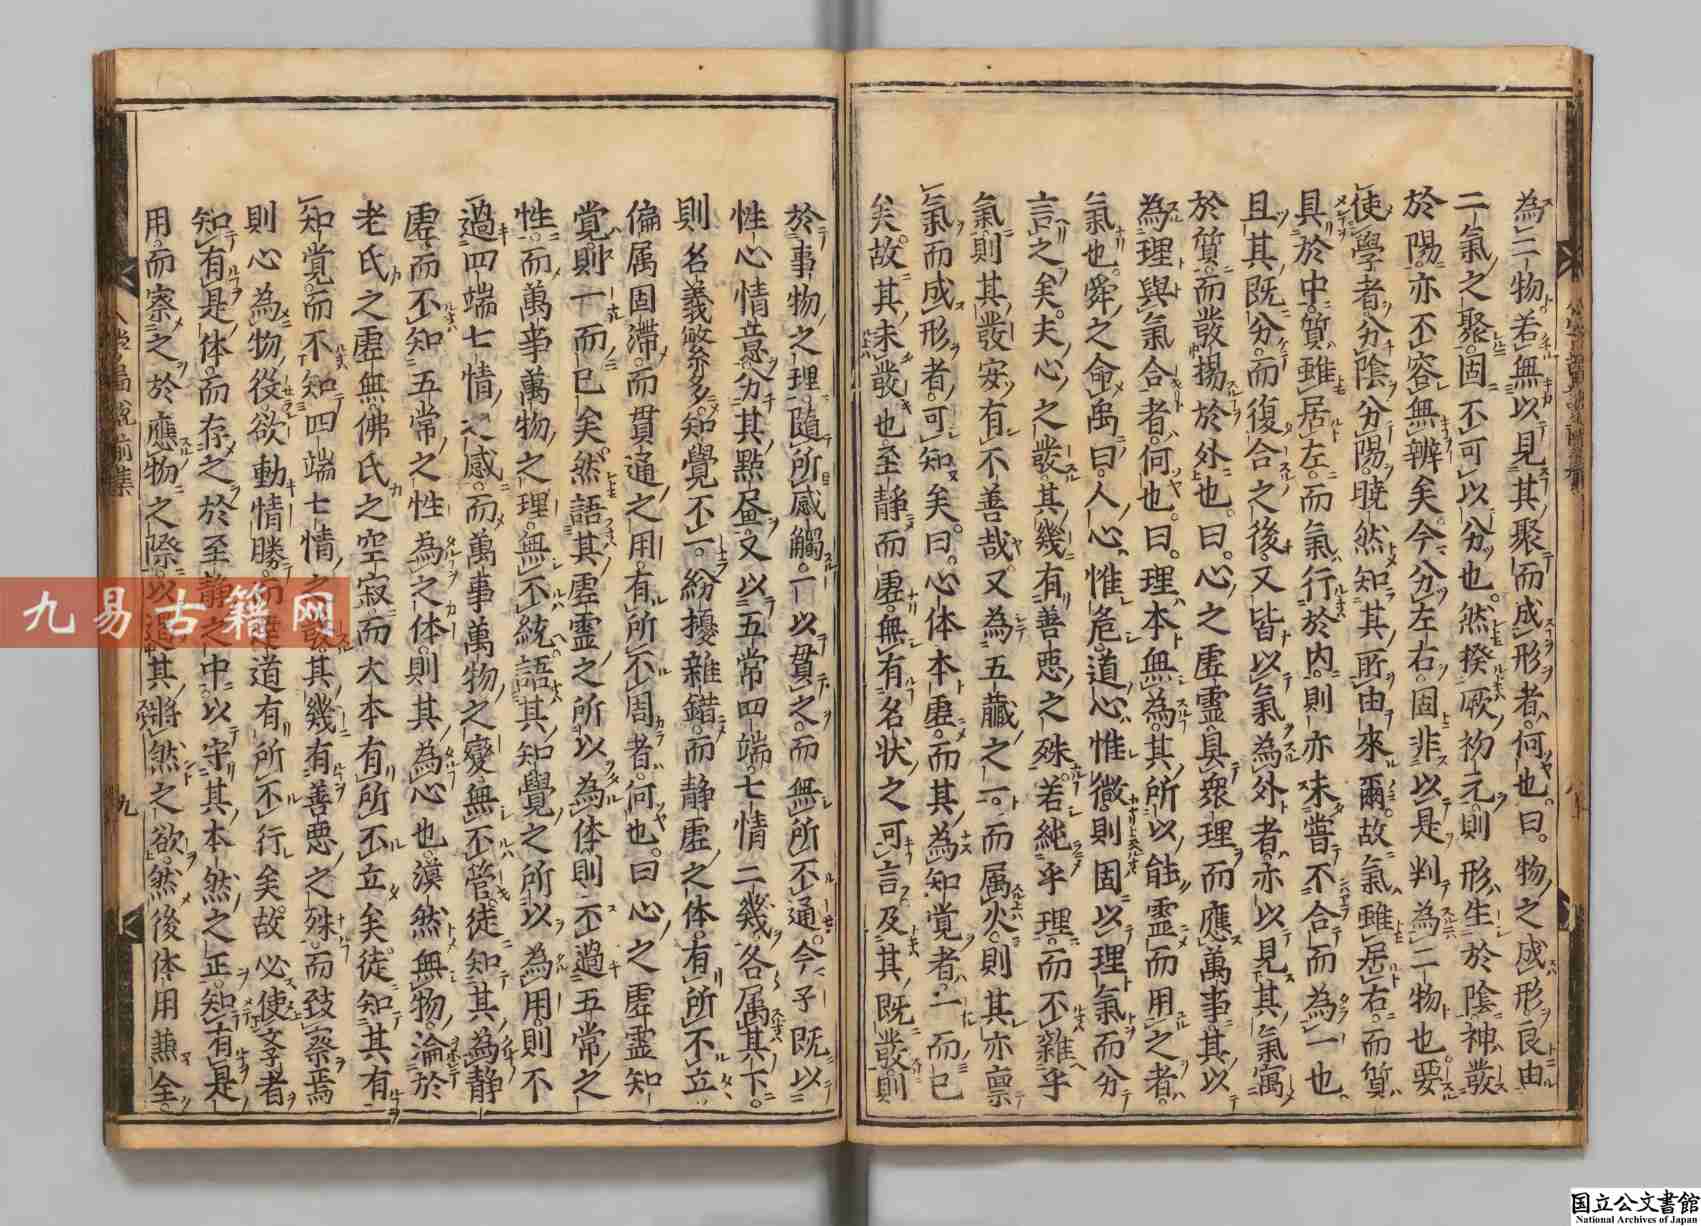 為二物若無以見其聚而成形者何也曰物之成形良由
二氣之聚固不可以分也然揆厥初元則形生於陰神發
於陽亦不容無辨矣今分左右固非以是判為二物也要
使學者分陰分陽曉然知其所由來爾故氣雖居右而質
具於中質雖居左而氣行於内則亦未嘗不合而為一也
且其既分而復合之後又皆以氣為外者亦以見其氣寓
於質而發揚於外也曰心之虛靈具衆理而應萬事其以
為理與氣合者何也曰理本無為其所以能靈而用之者
氣也舜之命禹曰人心惟危道心惟微則固以理氣而分
言之矣夫心之發其幾有善惡之殊若純乎理而不雜乎
氣則其發安有不善哉又為五藏之一而属火則其亦禀
氣而成形者可知矣曰心体本虛而其為知覚者一而已
矣故其未發也至静而虛無有名状之可言及其既發則
於事物之理隨所感觸一以貫之而無所不通今子既以
性心情意分其點畫又以五常四端七情二幾各属其下
則名義繁多知覺不一紛擾雜錯而静虛之体有所不立
偏属固滞而貫通之用有所不周者何也曰心之虛靈知
覚則一而已矣然語其虛靈之所以為体則不過五常之
性而萬事萬物之理無不統語其知覺之所以為用則不
過四端七情之感而萬事萬物之變無不管徒知其為静
虛而不知五常之性為之体則其為心也漠然無物淪於
老氏之虛無佛氏之空寂而大本有所不立矣徒知其有
知覚而不知四端七情之發其幾有善悪之殊而致察焉
則心為物役欲動情勝而達道有所不行矣故必使学者
知有是体而存之於至静之中以守其本然之正知有是
用而察之於應物之際以遏其將然之欲然後体用兼全
九
九易古籍网
国立公文書館
National Archives of Japan